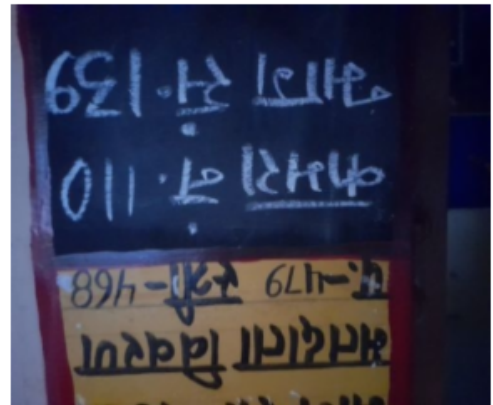 मतदाता विवरण
पु.-479 स्त्री-468
कमरा नं. 110
भाग सं. 139